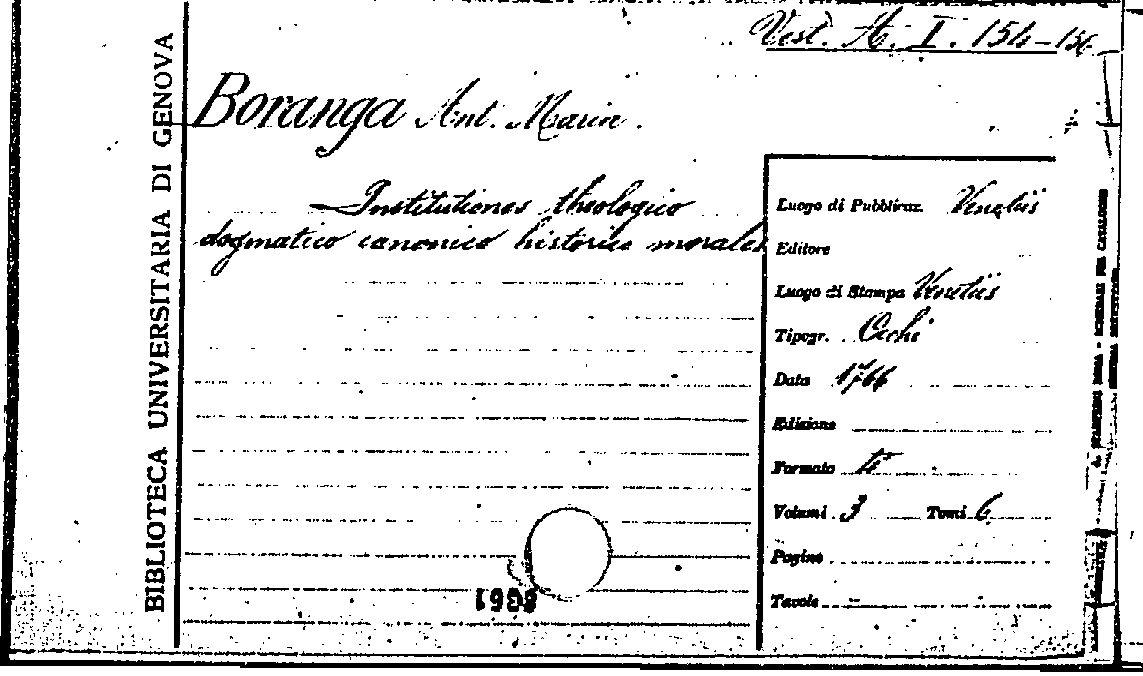 Vest. A. I. 154-156
BIBLIOTECA UNIVERSITARIA DI GENOVA
Boranga Ant. Maria.
Institutiones theologico
dogmatico canonico historico morales
Luogo di Pubblicaz. Venetiis
Editore
Luogo di Stampa Venetiis
Tipogr. Occhi
Data 1766
Edizione
Formato 4°
Volumi 3 Tomi 6
Pagine
Tavole